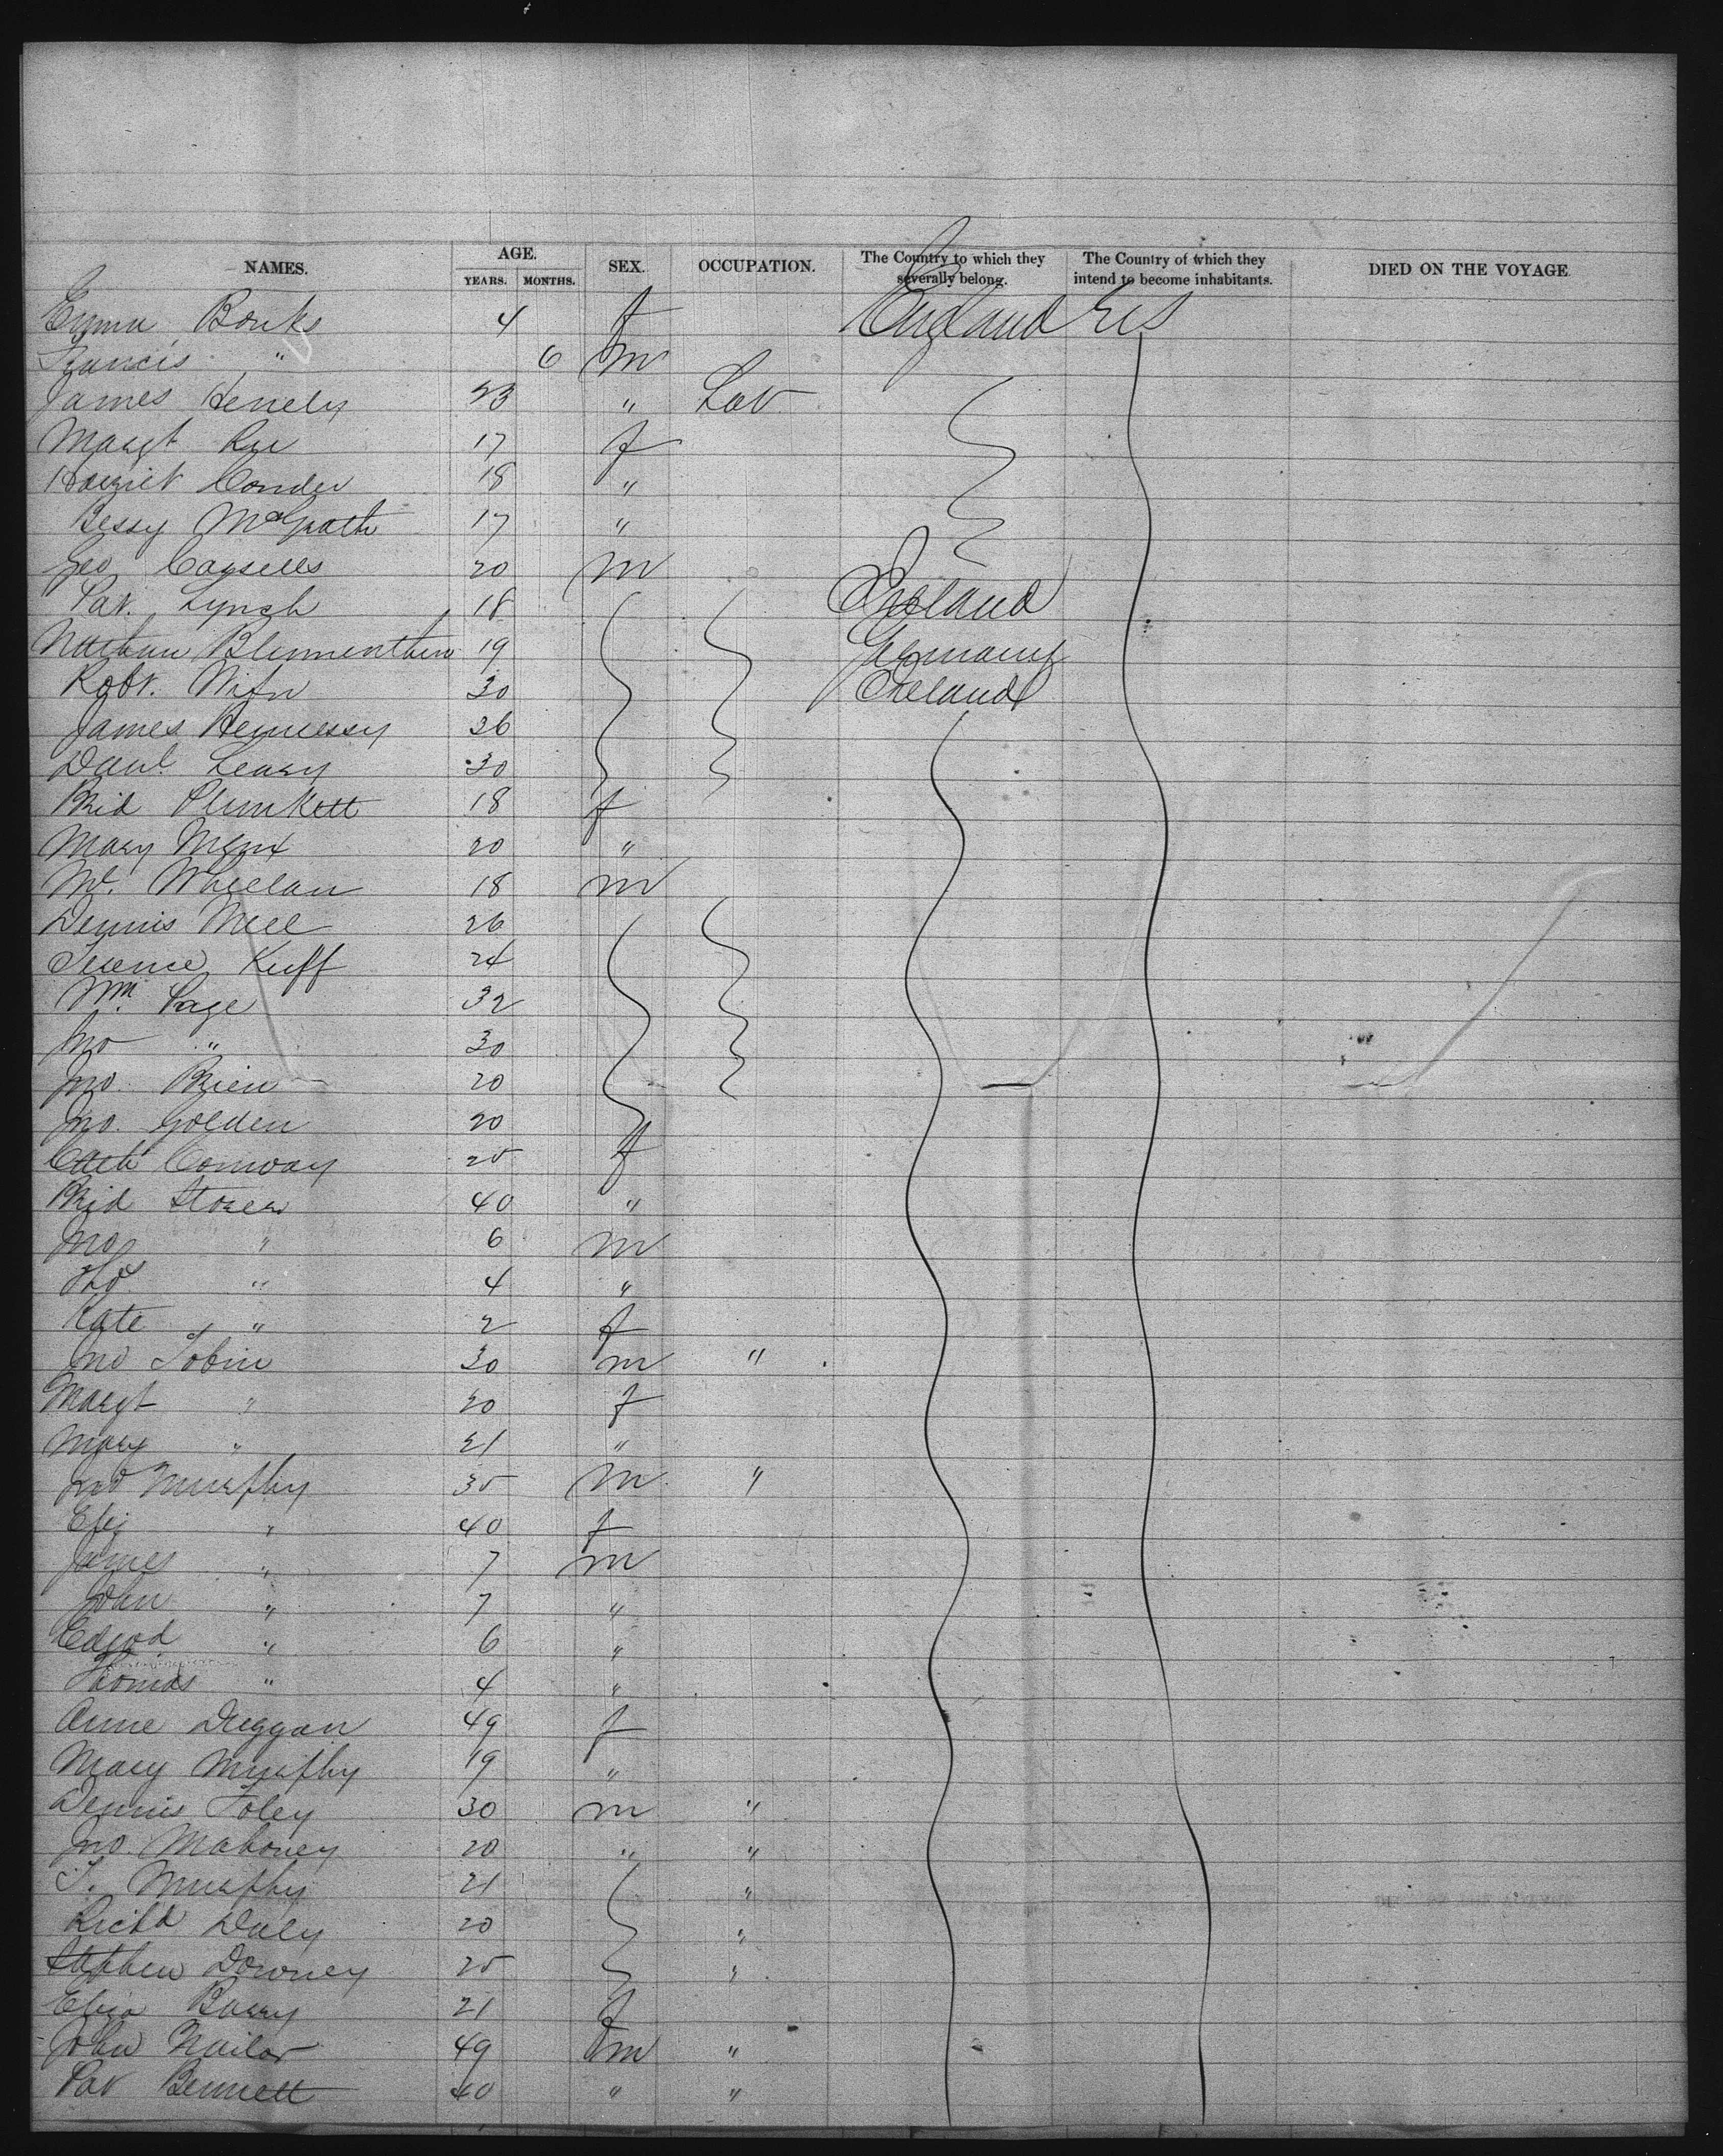 NAMES. AGE. YEARS. MONTHS. SEX. OCCUPATION. The Country to which they severally belong. The Country of which they intend to become inhabitants. DIED ON THE VOYAGE
Emma Banks 4 f England U S
Francis " 6 m
James Henely 23 " Lab
Margt 17 f
Harriet Conder 18 "
Bessy McGrath 17 "
Geo Caysells 20 m
Pat. Lynch 18 Ireland
Nathan 19 Germany
Robt. 30 Ireland
James Hennessy 26
Danl. Leary 30
Brid Plunkett 18 f
Mary 20 "
Whelan 18 m
Dennis 26
Terence Kuff 24
Wm. Page 32
Jno " 30
Jno. Brien 20
Jno. Golden 20
Cath Conway 25 f
Brid 40 "
Jno " 6 m
Tho " 4 "
Kate " 2 f
Jno Tobin 30 m "
Margt " 20 f
Mary " 21 "
Jno Murphy 35 m "
Eliz " 40 f
James " 7 m
John " 7 "
Edwd " 6 "
Thomas " 4 "
Anne Duggan 49 f
Mary Murphy 19 "
Dennis Foley 30 m "
Jno. Mahoney 20 " "
T. Murphy 21 "
Richd Daly 20 "
Stephen Downey 25 "
Eliza Barry 21 f
John Nailor 49 m "
Pat Bennett 40 " "